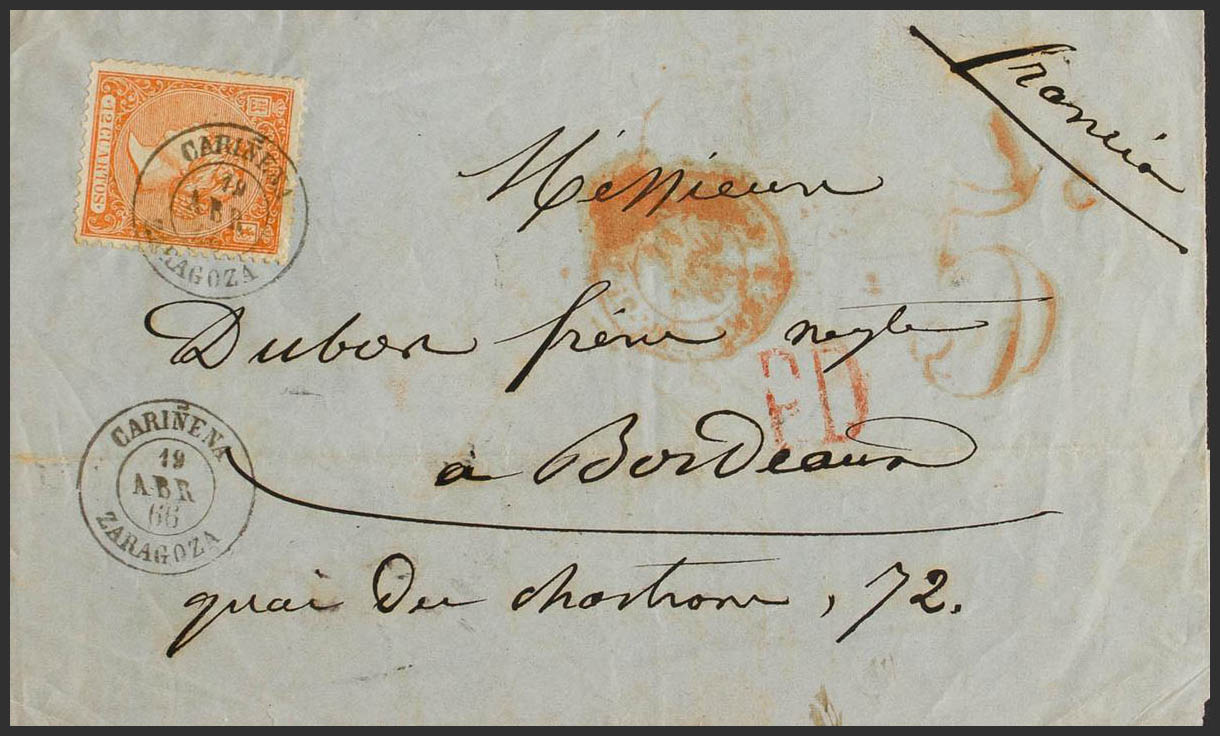 Francia
12 CUARTOS
CARIÑENA
19
ABR
ZARAGOZA
Messieurs
Dubos frères
P.D
CARIÑENA
19
ABR
66
ZARAGOZA
à Bordeaux
quai des chartrons, 72.